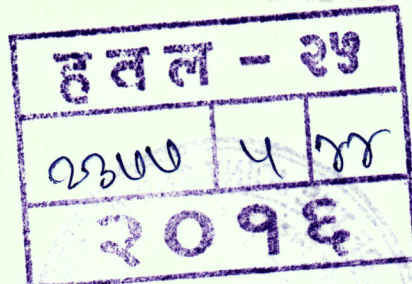 हवल - २५
२३७७ ५ ४४
२०१६